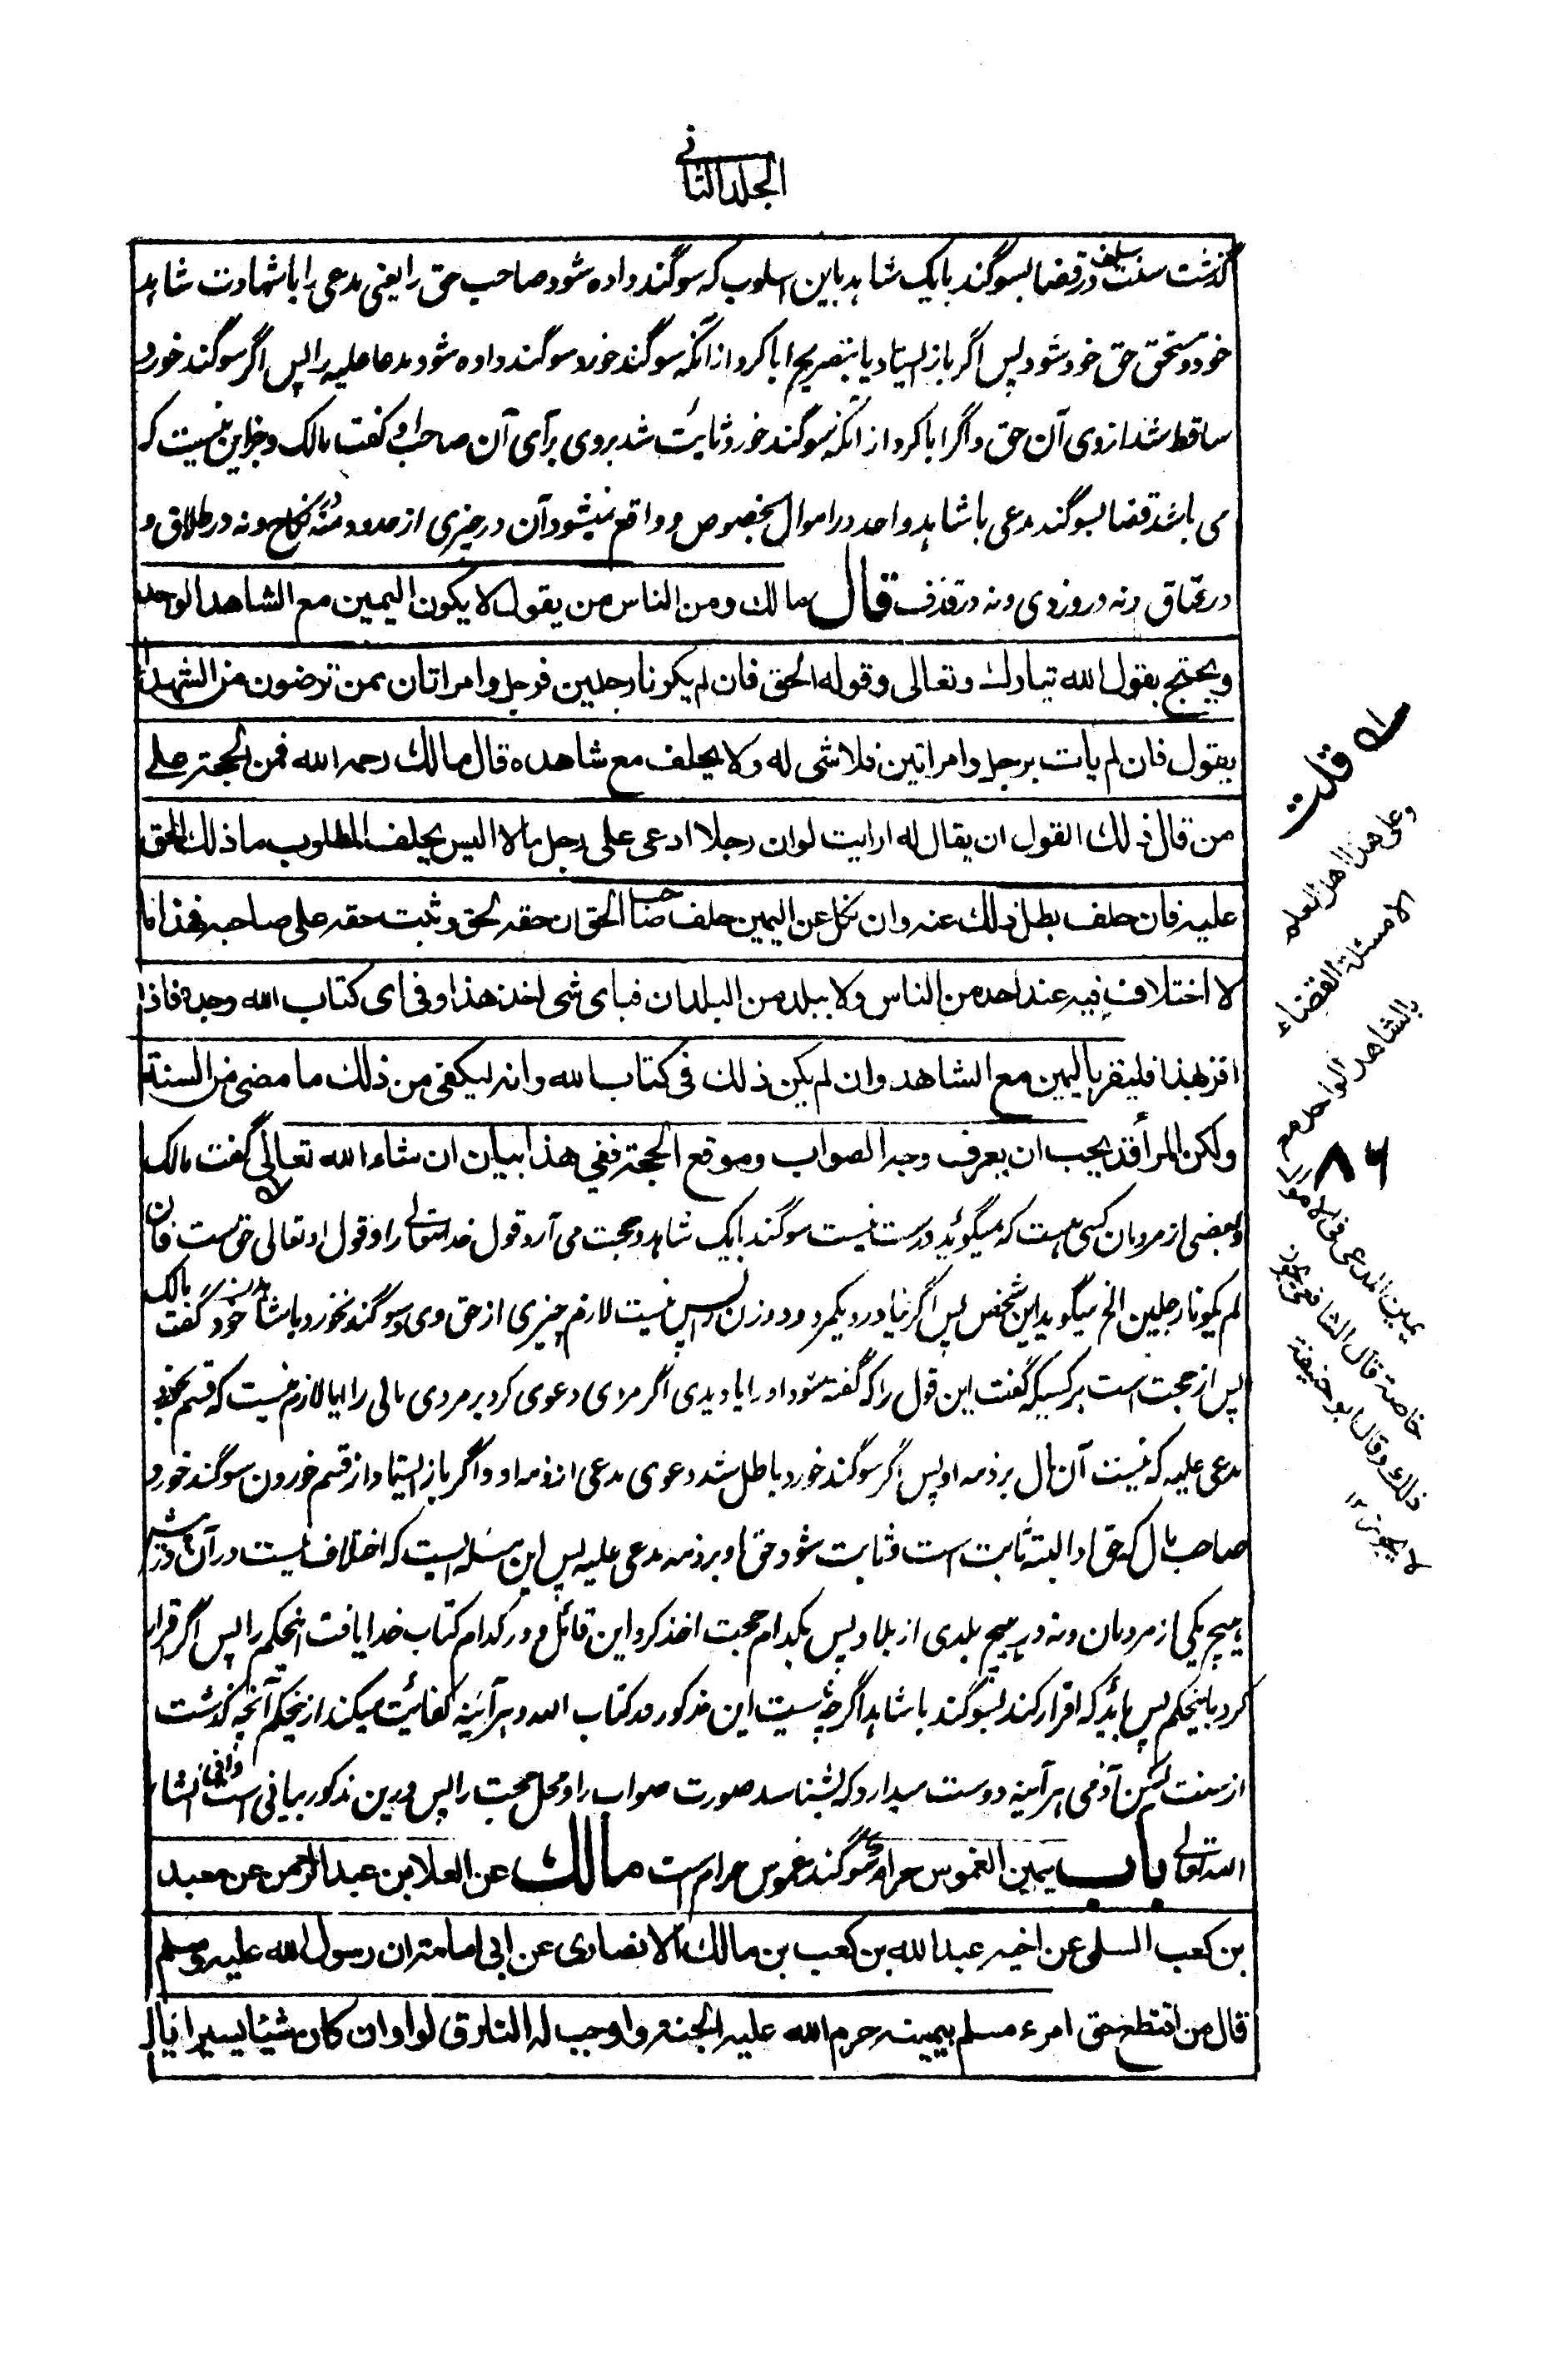 الجلد الثانی
گذشت سنت سلف در قضا بسوگند با یک شاهد باین اسلوب که سوگند داده شود صاحب حق را یعنی مدعی را با شهادت شاهد
خود و مستحق حق خود شود پس اگر باز ایستاد یا بتصریح ابا کرد از آنکه سوگند خورد سوگند داده شود مدعا علیه را پس اگر سوگند خورد
ساقط شد از وی آن حق و اگر ابا کرد از آنکه سوگند خورد ثابت شد بروی برآی آن صاحب او گفت مالک و جز این نیست که
می باشد قضا بسوگند مدعی با شاهد واحد در اموال بخصوص و واقع نمیشود آن در چیزی از حدود و نه در نکاح و نه در طلاق و
در عتاق و نه در دزدی و نه در قذف قال مالك ومن الناس من يقول لا يكون اليمين مع الشاهد الواحد
ويحتج بقول الله تبارك وتعالى وقوله الحق فان لم يكونا رجلين فرجل وامراتان ممن ترضون من الشهداء
يقول فان لم يات برجل وامراتين فلا شى له ولا يحلف مع شاهده قال مالك رحمه الله فمن الحجة على
من قال ذلك القول ان يقال له ارايت لو ان رجلا ادعى على رجل مالا اليس يحلف المطلوب ما ذلك الحق
عليه فان حلف بطل ذلك عنه وان نكل عن اليمين حلف صاحب الحق ان حقه لحق وثبت حقه على صاحبه فهذا ما
لا اختلاف فيه عند احد من الناس ولا ببلد من البلدان فباى شى اخذ هذا او فى اى كتاب الله وجده فاذا
اقر بهذا فليقر باليمين مع الشاهد وان لم يكن ذلك فى كتاب الله وانه ليكفى من ذلك ما مضى من السنة
ولكن المرأ قد يحب ان يعرف وجه الصواب وموقع الحجة ففي هذا بيان ان شاء الله تعالى گفت مالک
و بعضی از مردمان کسی هست که میگوید درست نیست سوگند با یک شاهد و حجت می آرد قول خدایتعالی را و قول او تعالی حق ست فان
لم یکونا رجلین الخ میگوید این شخص پس اگر نیاورد یکمرد و دو زن را پس نیست لازم چیزی از حق وی و سوگند نخورد با شاهد خود گفت مالک
پس از حجت است بر کسیکه گفت این قول را که گفته شود او را ایا دیدی اگر مردی دعوی کرد بر مردی مالی را ایا لازم نیست که قسم بخورد
مدعی علیه که نیست آن مال بر ذمه او پس اگر سوگند خورد باطل شد دعوی مدعی از ذمه او و اگر باز ایستاد از قسم خوردن سوگند خورد
صاحب مال که حق او البته ثابت است و ثابت شود حق او بر ذمه مدعی علیه پس این مسئله ایست که اختلاف نیست در آن نزد
هیچ یکی از مردمان و نه در هیچ بلدی از بلاد پس بکدام حجت اخذ کرد این قائل و در کدام کتاب خدا یافت اینحکم را پس اگر اقرار
کرد باینحکم پس باید که اقرار کند بسوگند با شاهد اگر چه نیست این مذکور در کتاب الله و هر آئینه کفایت میکند از ینحکم آنچه گذشت
از سنت لیکن آدمی هر آئینه دوست میدارد که بشناسد صورت صواب را و محل حجت را پس درین مذکور بیانی است وافی انشاء
الله تعالی باب يمين الغموس حرام سوگند غموس حرام است مالك عن العلا بن عبد الرحمن عن معبد
بن كعب السلمى عن اخيه عبد الله بن كعب بن مالك الانصارى عن ابى امامة ان رسول الله عليه وسلم
قال من اقتطع حق امرء مسلم بيمينه حرم الله عليه الجنة واوجب له النار قالوا وان كان شيئا يسيرا يا
قلت
وعلى هذا اهل العلم
الا مسئلة القضاء
بالشاهد الواحد مع
يمين المدعى فى الاموال
خاصة قال الشافعى يجوز
ذلك وقال ابو حنيفة
لا يجوز ١٢